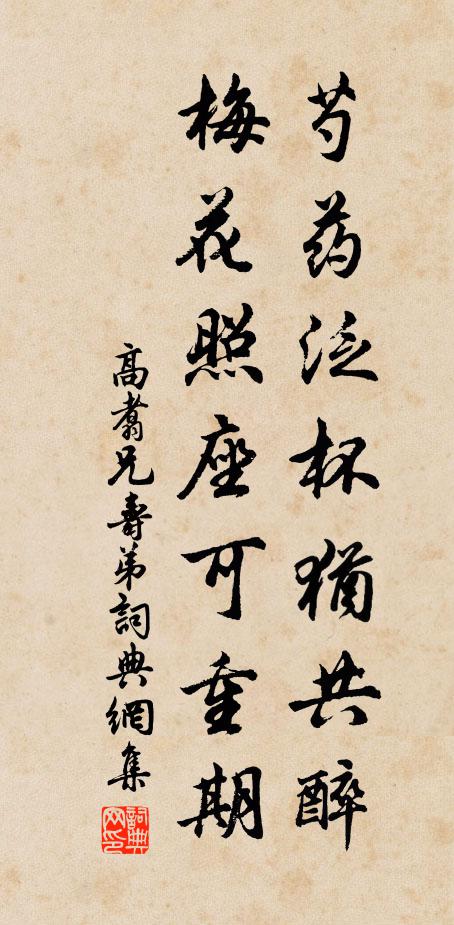 芍药泛杯犹共醉
梅花照座可重期
高翥兄寿弟詞典網集
詞典網印